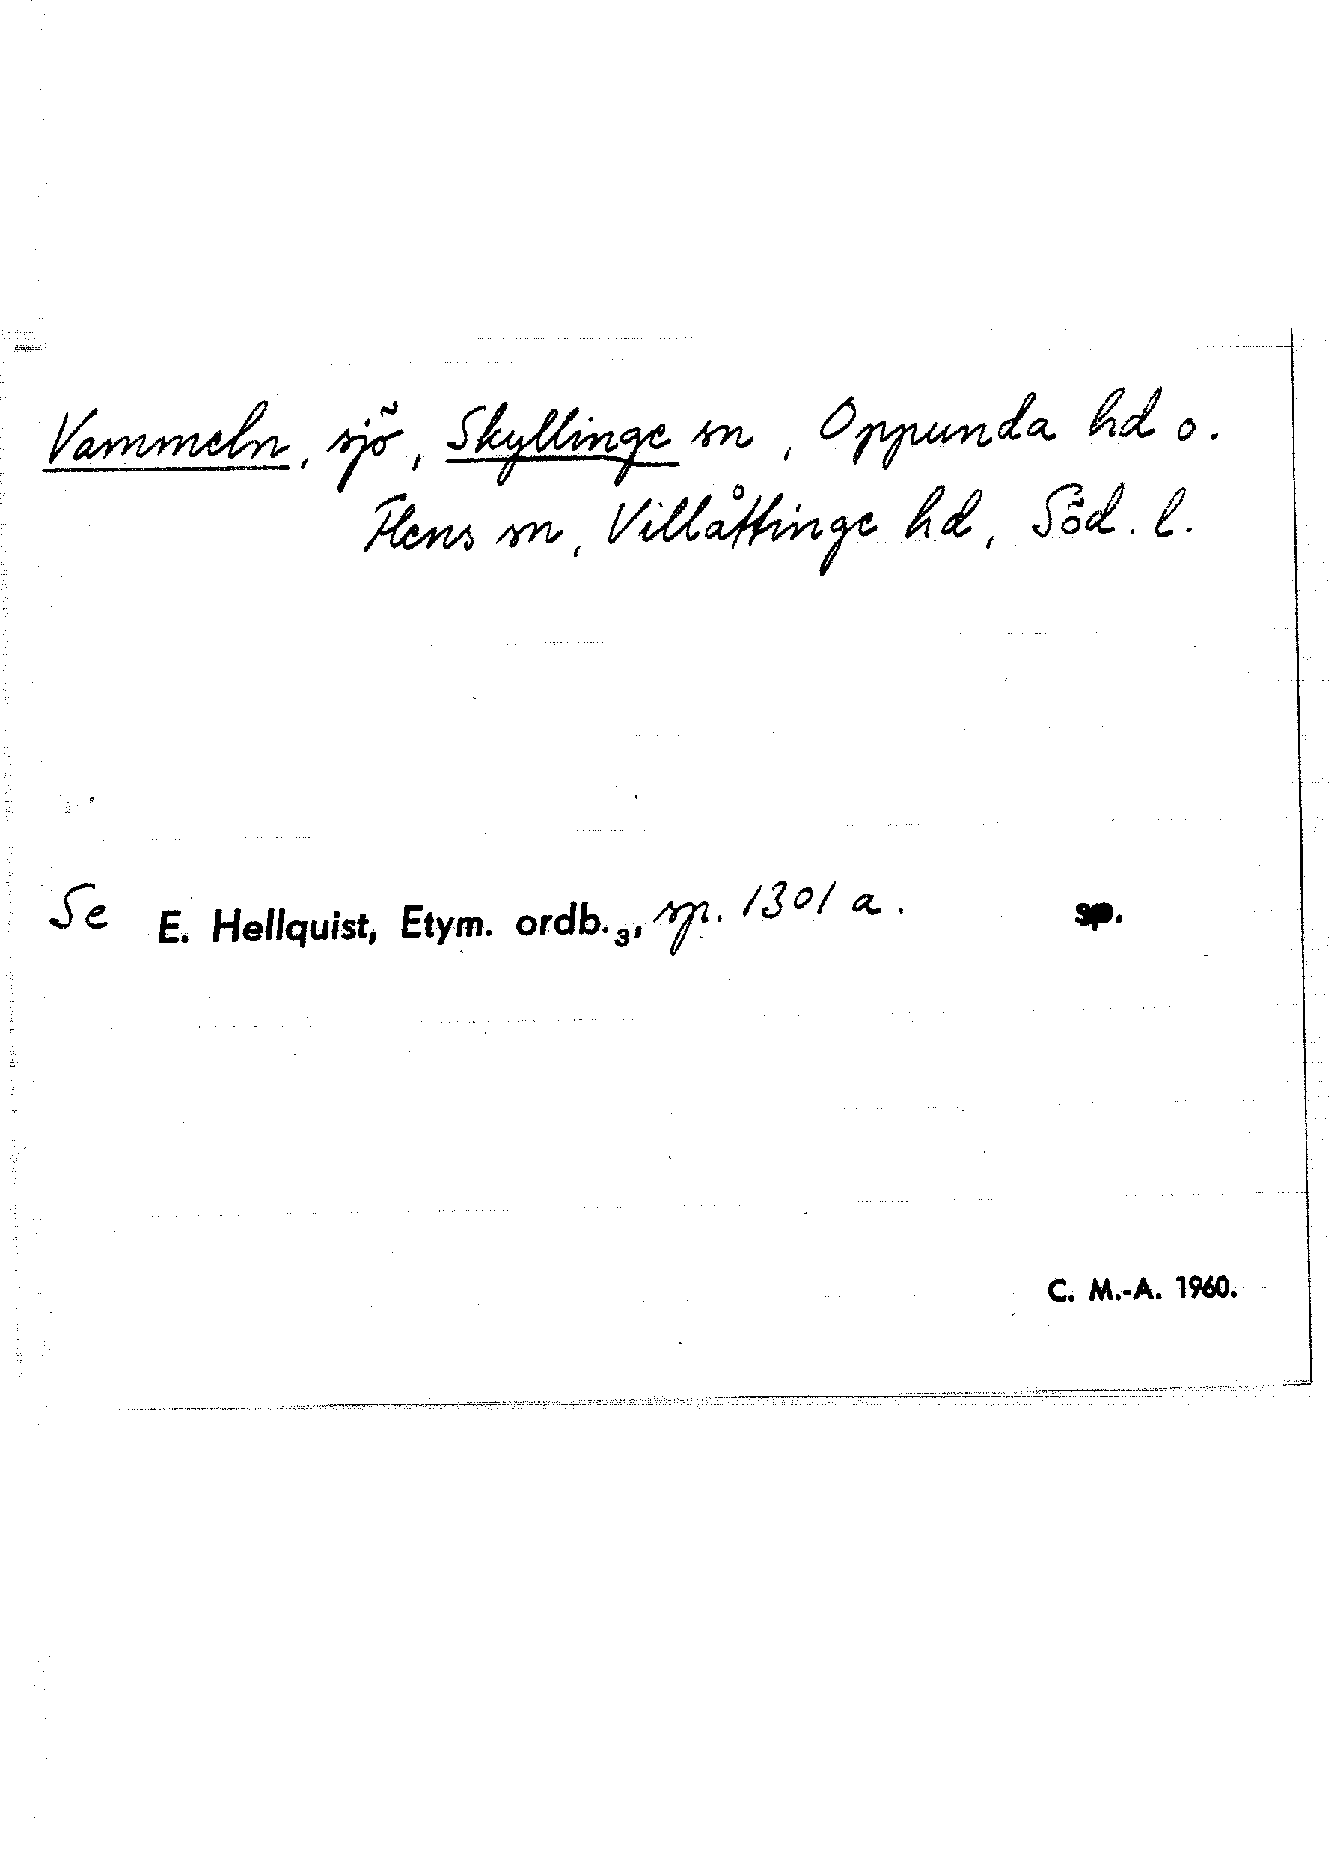 Vammeln, sjö, Skyllinge sn, Oppunda hd o.
Flens sn, Villåttinge hd, Söd. l.
Se E. Hellquist, Etym. ordb.₃, sp. 1301 a. sp.
C. M.-A. 1960.